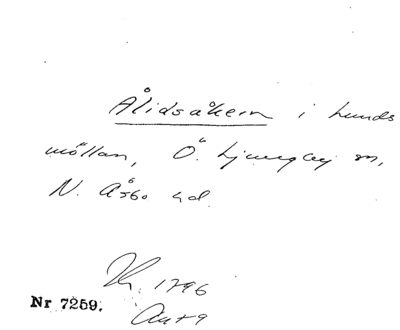 Ålidsåkern i Lunds
möllan, Ö. Ljungby sn,
N. Åsbo hd.
1796
Nr 7259.